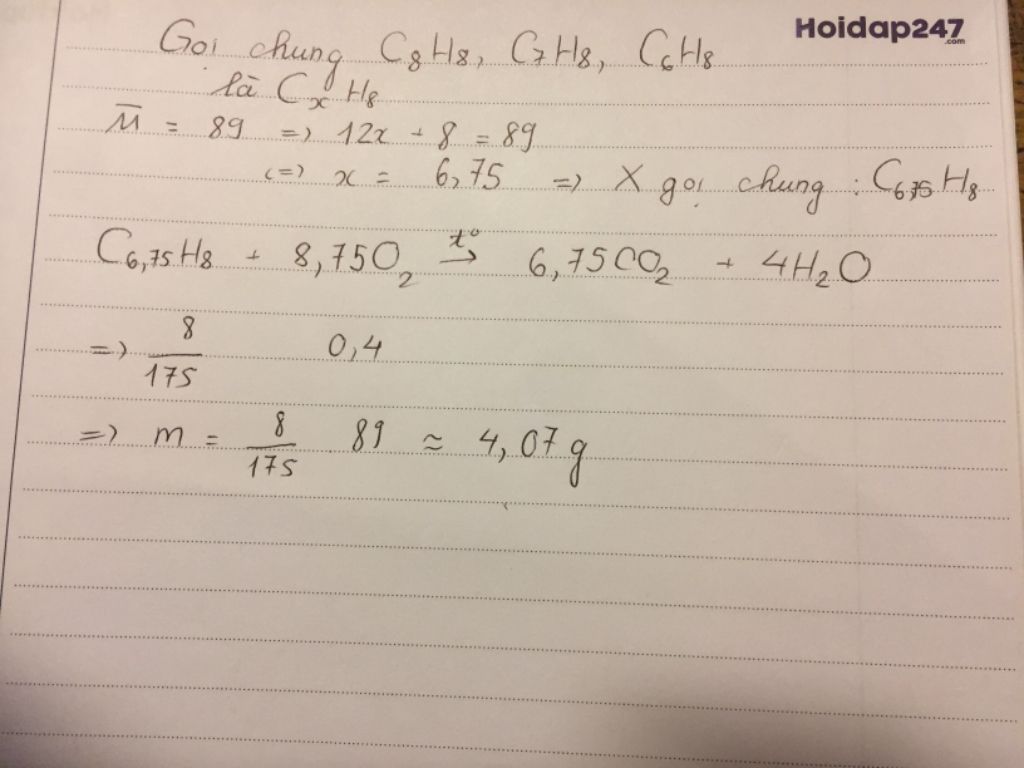 Hoidap247
.com
Gọi chung C8H8, C7H8, C6H8
là CxH8
M̅ = 89 => 12x + 8 = 89
<=> x = 6,75 => X gọi chung : C6,75H8
C6,75H8 + 8,75O2 t° → 6,75CO2 + 4H2O
=> 8/175 0,4
=> m = 8/175 . 89 ≈ 4,07g